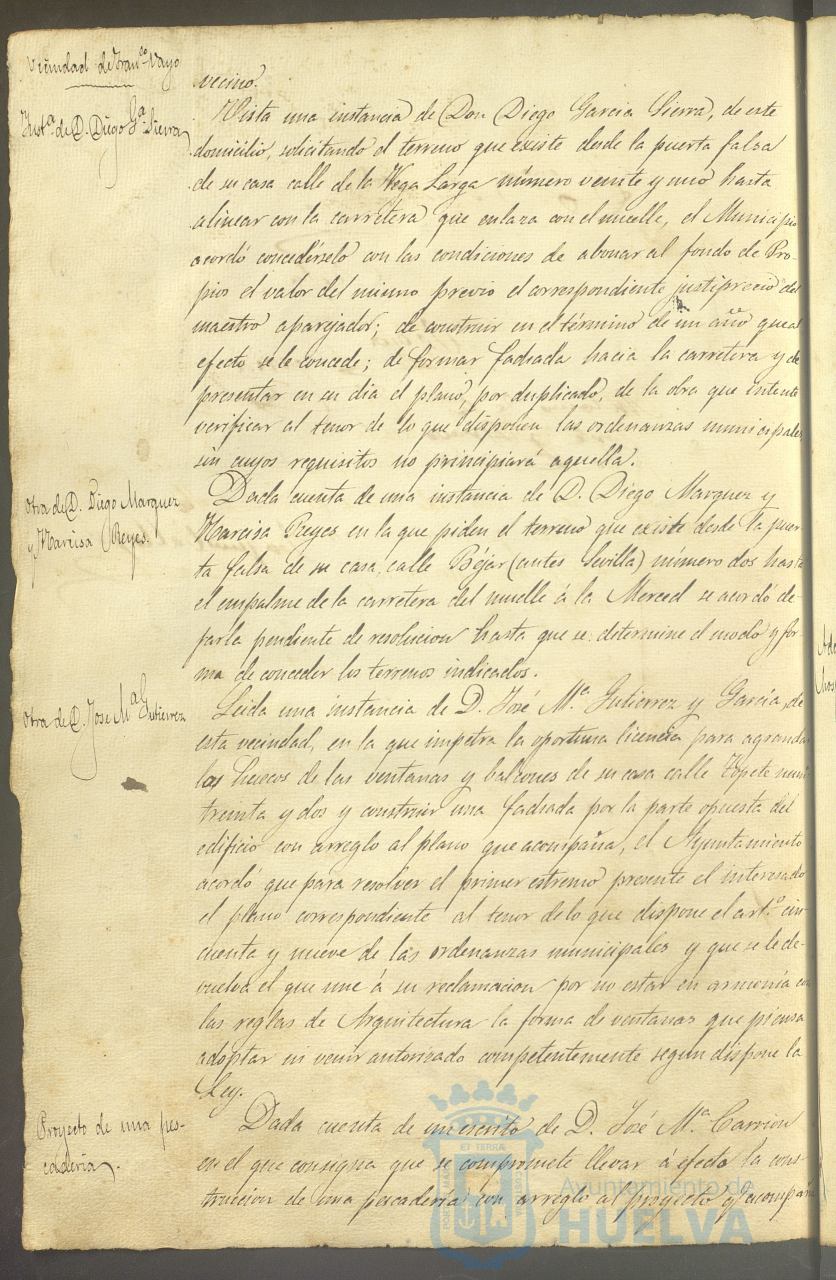 Vecindad de Fran.co Vayo
vecino.
Inst.a de D. Diego G.a Sierra
Vista una instancia de Don Diego Garcia Sierra, de este
domicilio, solicitando el terreno que existe desde la puerta falsa
de su casa calle de la Vega Larga número veinte y uno hasta
alinear con la carretera que enlaza con el muelle, el Municipio
acordó concedérselo con las condiciones de abonar al fondo de Pro-
pios el valor del mismo previo el correspondiente justiprecio del
maestro aparejador; de construir en el término de un año que al
efecto se le concede; de formar fachada hacia la carretera y de
presentar en su dia el plano, por duplicado, de la obra que intente
verificar al tenor de lo que disponen las ordenanzas municipales
sin cuyos requisitos no principiará aquella.
Otra de D. Diego Marquez
y Narcisa Reyes.
Dada cuenta de una instancia de D. Diego Marquez y
Narcisa Reyes en la que piden el terreno que existe desde la puer-
ta falsa de su casa calle Béjar (antes Sevilla) número dos hasta
el empalme de la carretera del muelle á la Merced se acordó de-
jarla pendiente de resolucion hasta que se determine el modo y for-
ma de conceder los terrenos indicados.
Otra de D. Jose M.a Gutierrez
Leida una instancia de D. José M.a Gutierrez y Garcia, de
esta vecindad, en la que impetra la oportuna licencia para agrandar
los huecos de las ventanas y balcones de su casa calle Topete num.o
treinta y dos y construir una fachada por la parte opuesta del
edificio con arreglo al plano que acompaña, el Ayuntamiento
acordó que para resolver el primer estremo presente el interesado
el plano correspondiente al tenor de lo que dispone el art.o cin-
cuenta y nueve de las ordenanzas municipales y que se le de-
vuelva el que une á su reclamacion por no estar en armonía con
las reglas de Arquitectura la forma de ventanas que piensa
adoptar ni venir autorizado competentemente segun dispone la
Ley.
Proyecto de una pes-
cadería.
Dada cuenta de un escrito de D. José M.a Carrion
en el que consigna que se compromete llevar á efecto la cons-
truccion de una pescadería con arreglo al proyecto q.e acompaña
Ayuntamiento de
HUELVA